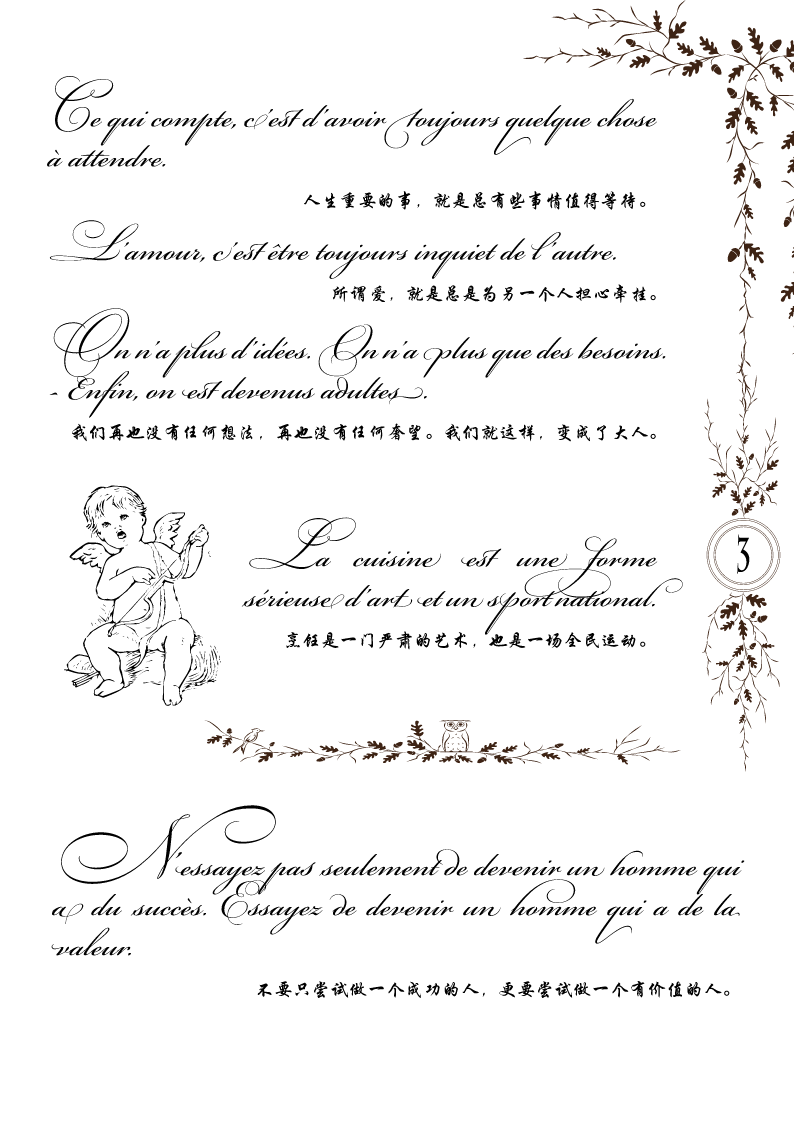 Ce qui compte, c'est d'avoir toujours quelque chose
à attendre.
人生重要的事，就是总有些事情值得等待。
L'amour, c'est être toujours inquiet de l'autre.
所谓爱，就是总是为另一个人担心牵挂。
On n'a plus d'idées. On n'a plus que des besoins.
- Enfin, on est devenus adultes.
我们再也没有任何想法，再也没有任何奢望。我们就这样，变成了大人。
La cuisine est une forme
sérieuse d'art et un sport national.
烹饪是一门严肃的艺术，也是一场全民运动。
3
N'essayez pas seulement de devenir un homme qui
a du succès. Essayez de devenir un homme qui a de la
valeur.
不要只尝试做一个成功的人，更要尝试做一个有价值的人。